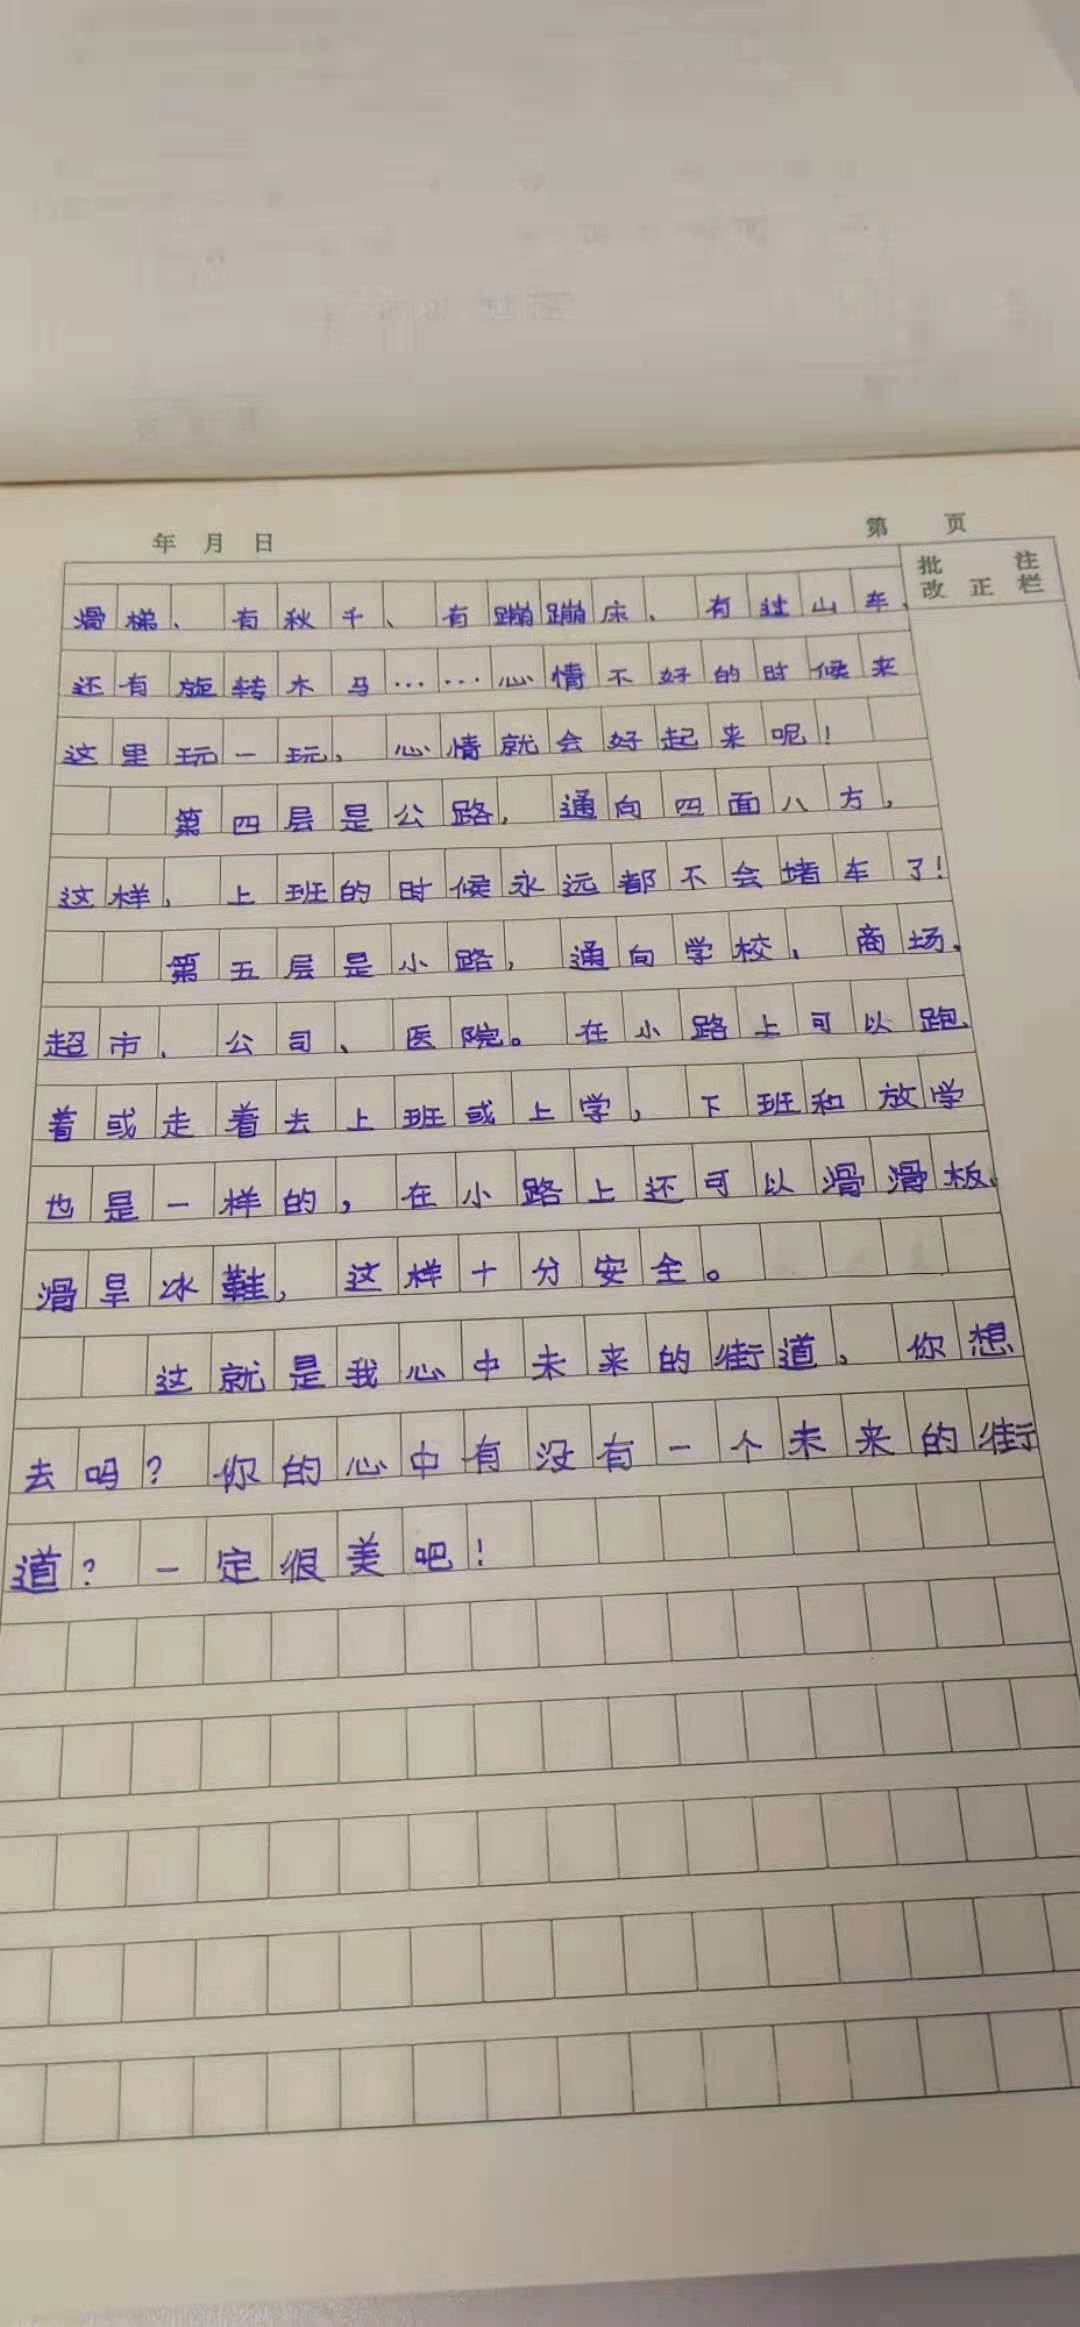 年 月 日
第 页
批 注
改 正 栏
滑梯、有秋千、有蹦蹦床、有过山车、
还有旋转木马……心情不好的时候来
这里玩一玩，心情就会好起来呢！
第四层是公路，通向四面八方，
这样，上班的时候永远都不会堵车了！
第五层是小路，通向学校、商场、
超市、公司、医院。在小路上可以跑
着或走着去上班或上学，下班和放学
也是一样的，在小路上还可以滑滑板、
滑旱冰鞋，这样十分安全。
这就是我心中未来的街道，你想
去吗？你的心中有没有一个未来的街
道？一定很美吧！